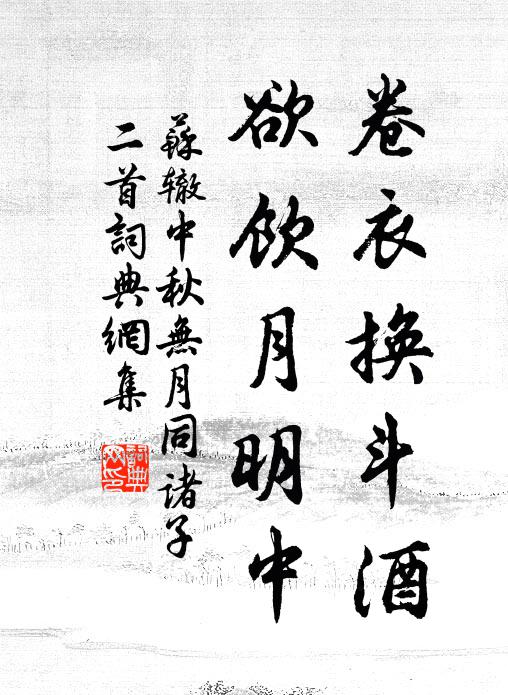 卷衣換斗酒
欲飲月明中
蘇辙中秋無月同諸子
二首詞典網集
詞典
网印